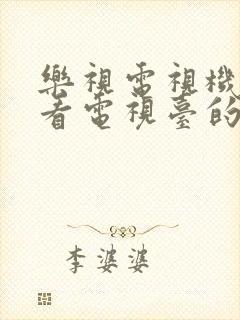 樂視電視機
看電視臺的
李婆婆